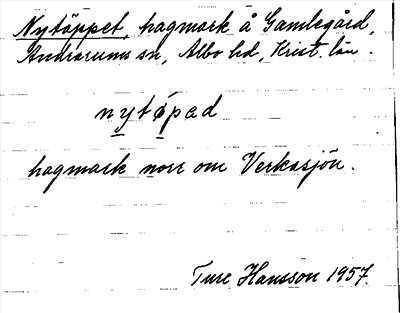 Nytäppet, hagmark å Gamlegård,
Andrarums sn, Albo hd, Krist. län.
nytøpad
hagmark norr om Verkasjön.
Ture Hansson 1957.